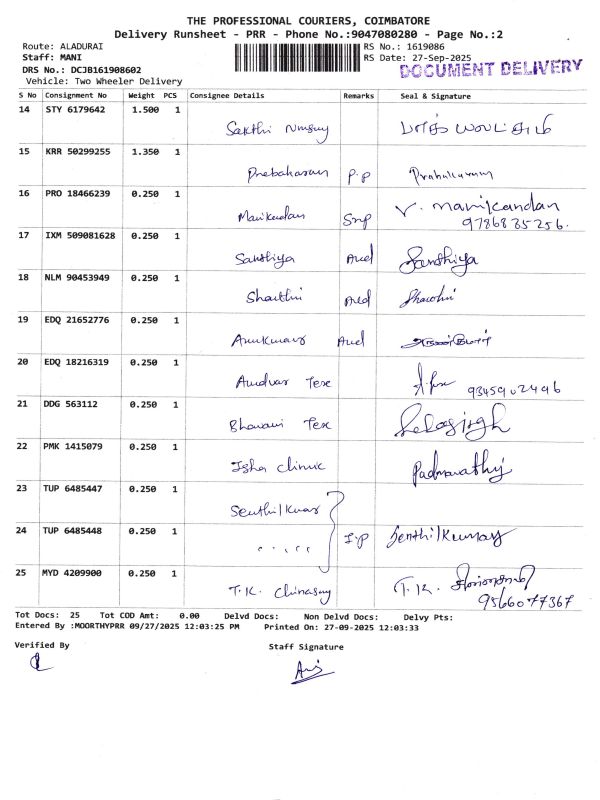 THE PROFESSIONAL COURIERS, COIMBATORE
Delivery Runsheet - PRR - Phone No.:9047080280 - Page No.:2
Route: ALADURAI RS No.: 1619086
Staff: MANI RS Date: 27-Sep-2025
DRS No.: DCJB161908602 DOCUMENT DELIVERY
Vehicle: Two Wheeler Delivery
S No Consignment No Weight PCS Consignee Details Remarks Seal & Signature
14 STY 6179642 1.500 1
Sakthi
15 KRR 50299255 1.350 1
Prebaharan P.P
16 PRO 18466239 0.250 1
V. Manikandan
Manikandan
9786835256.
17 IXM 509081628 0.250 1
Santhiya Aud Santhiya
18 NLM 90453949 0.250 1
Aud
19 EDQ 21652776 0.250 1
Aud
20 EDQ 18216319 0.250 1
Tex 9345902496
21 DDG 563112 0.250 1
Bhavani Tex
22 PMK 1415079 0.250 1
Isha Clinic Padmavathy
23 TUP 6485447 0.250 1
Senthilkumar
24 TUP 6485448 0.250 1
I.P Senthilkumar
25 MYD 4209900 0.250 1
T.K. Chinasmy T.K.
9566077367
Tot Docs: 25 Tot COD Amt: 0.00 Delvd Docs: Non Delvd Docs: Delvy Pts:
Entered By :MOORTHYPRR 09/27/2025 12:03:25 PM Printed On: 27-09-2025 12:03:33
Verified By Staff Signature